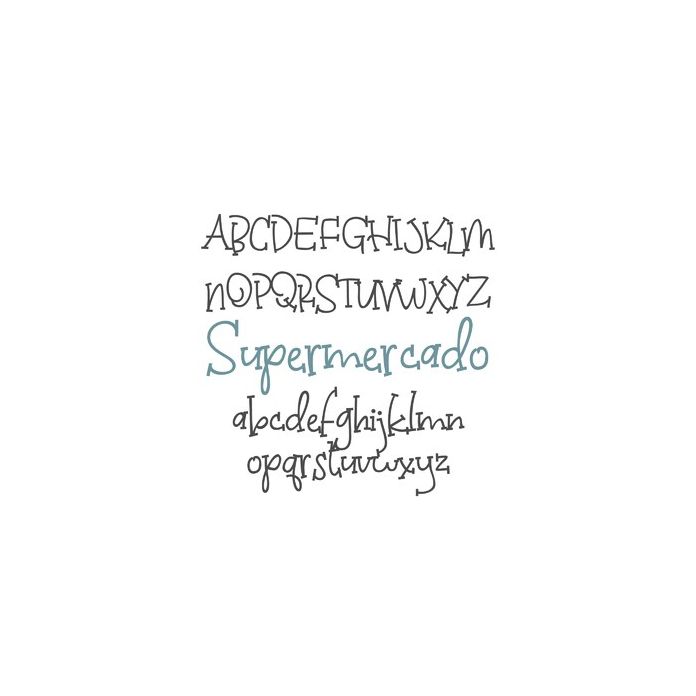 ABCDEFGHIJKLM
nOPQRSTUVWXYZ
Supermercado
abcdefghijklmn
opqrstuvwxyz